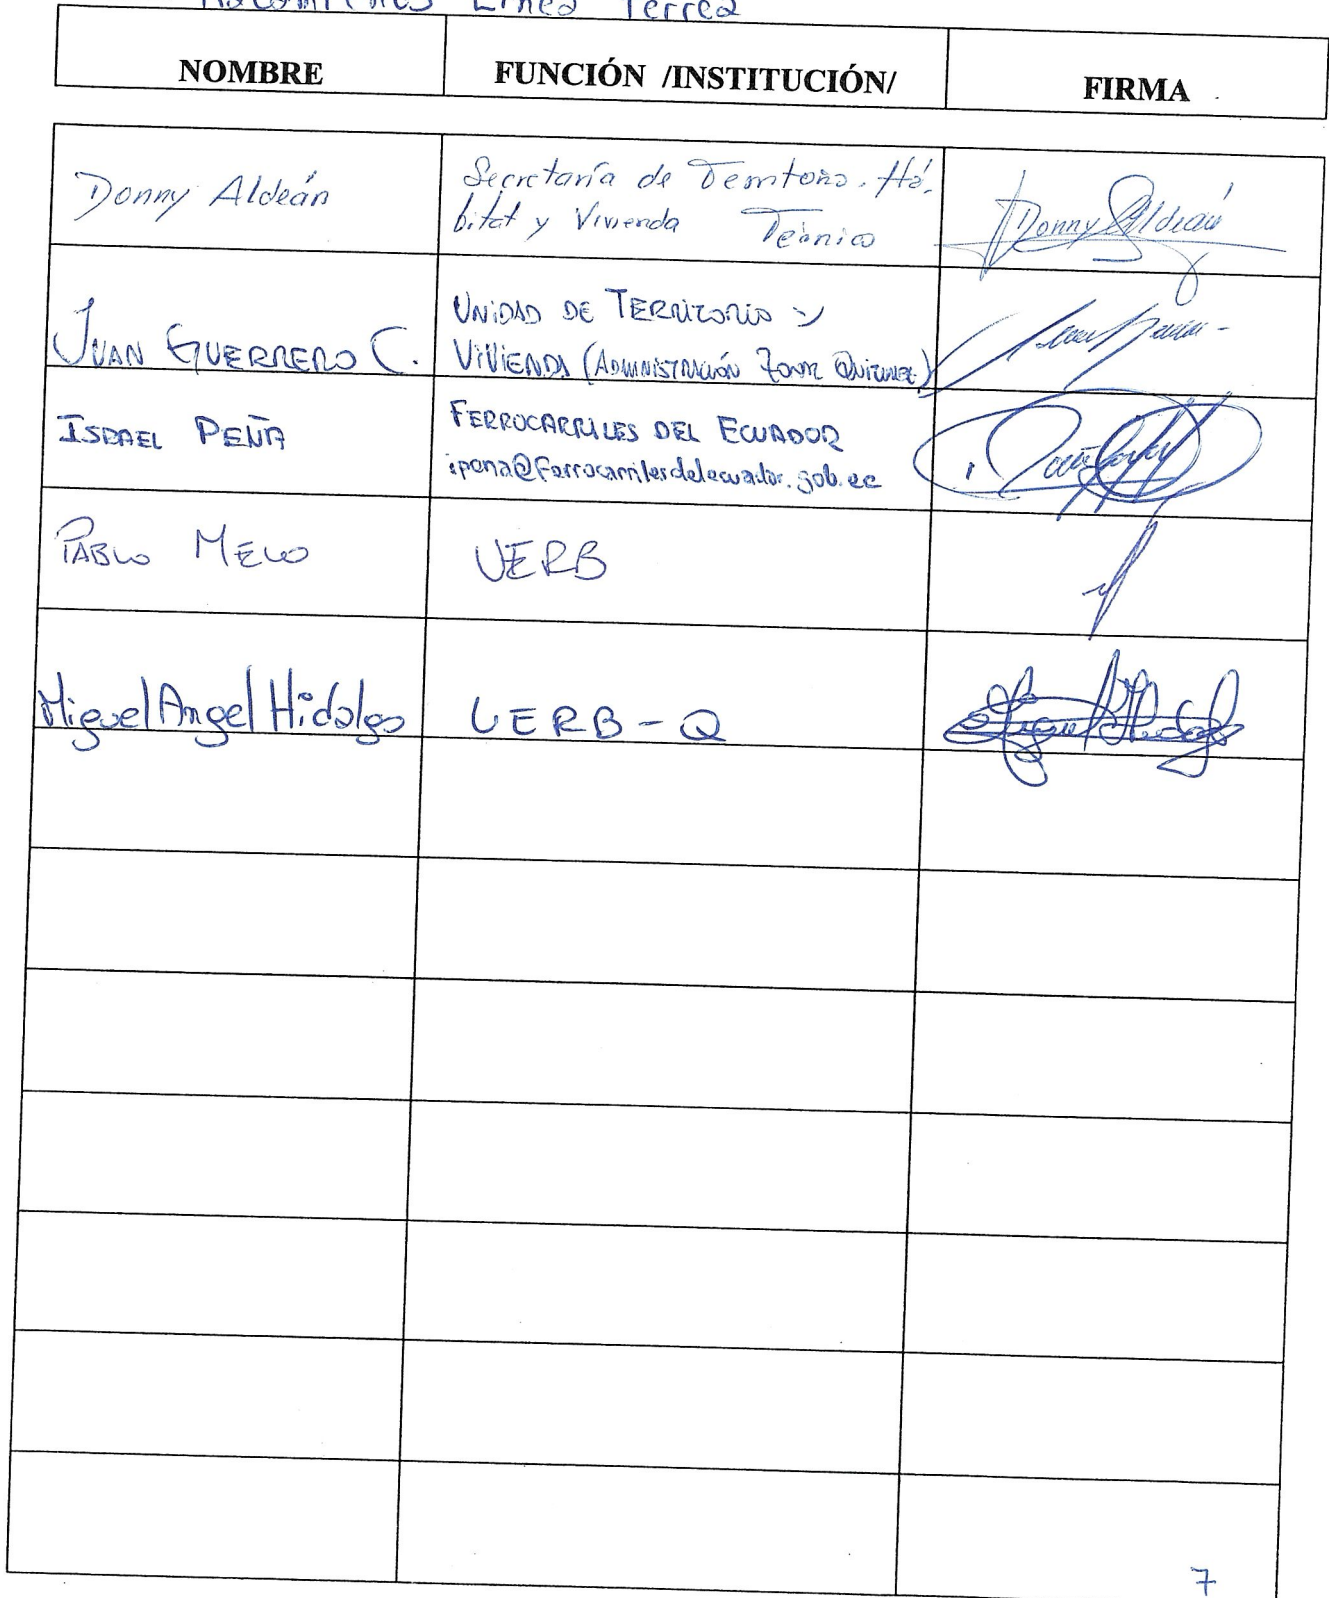 Línea Férrea
NOMBRE FUNCIÓN /INSTITUCIÓN/ FIRMA
Donny Aldeán Secretaría de Territorio. Há.
bitat y Vivienda Técnico Donny Aldeán
JUAN GUERRERO C. UNIDAD DE TERRITORIO Y
VIVIENDA (ADMINISTRACIÓN ZONAL
ISRAEL PEÑA FERROCARRILES DEL ECUADOR
ipena@ferrocarrilesdelecuador.gob.ec
PABLO MELO UERB
Miguel Angel Hidalgo UERB-Q
7